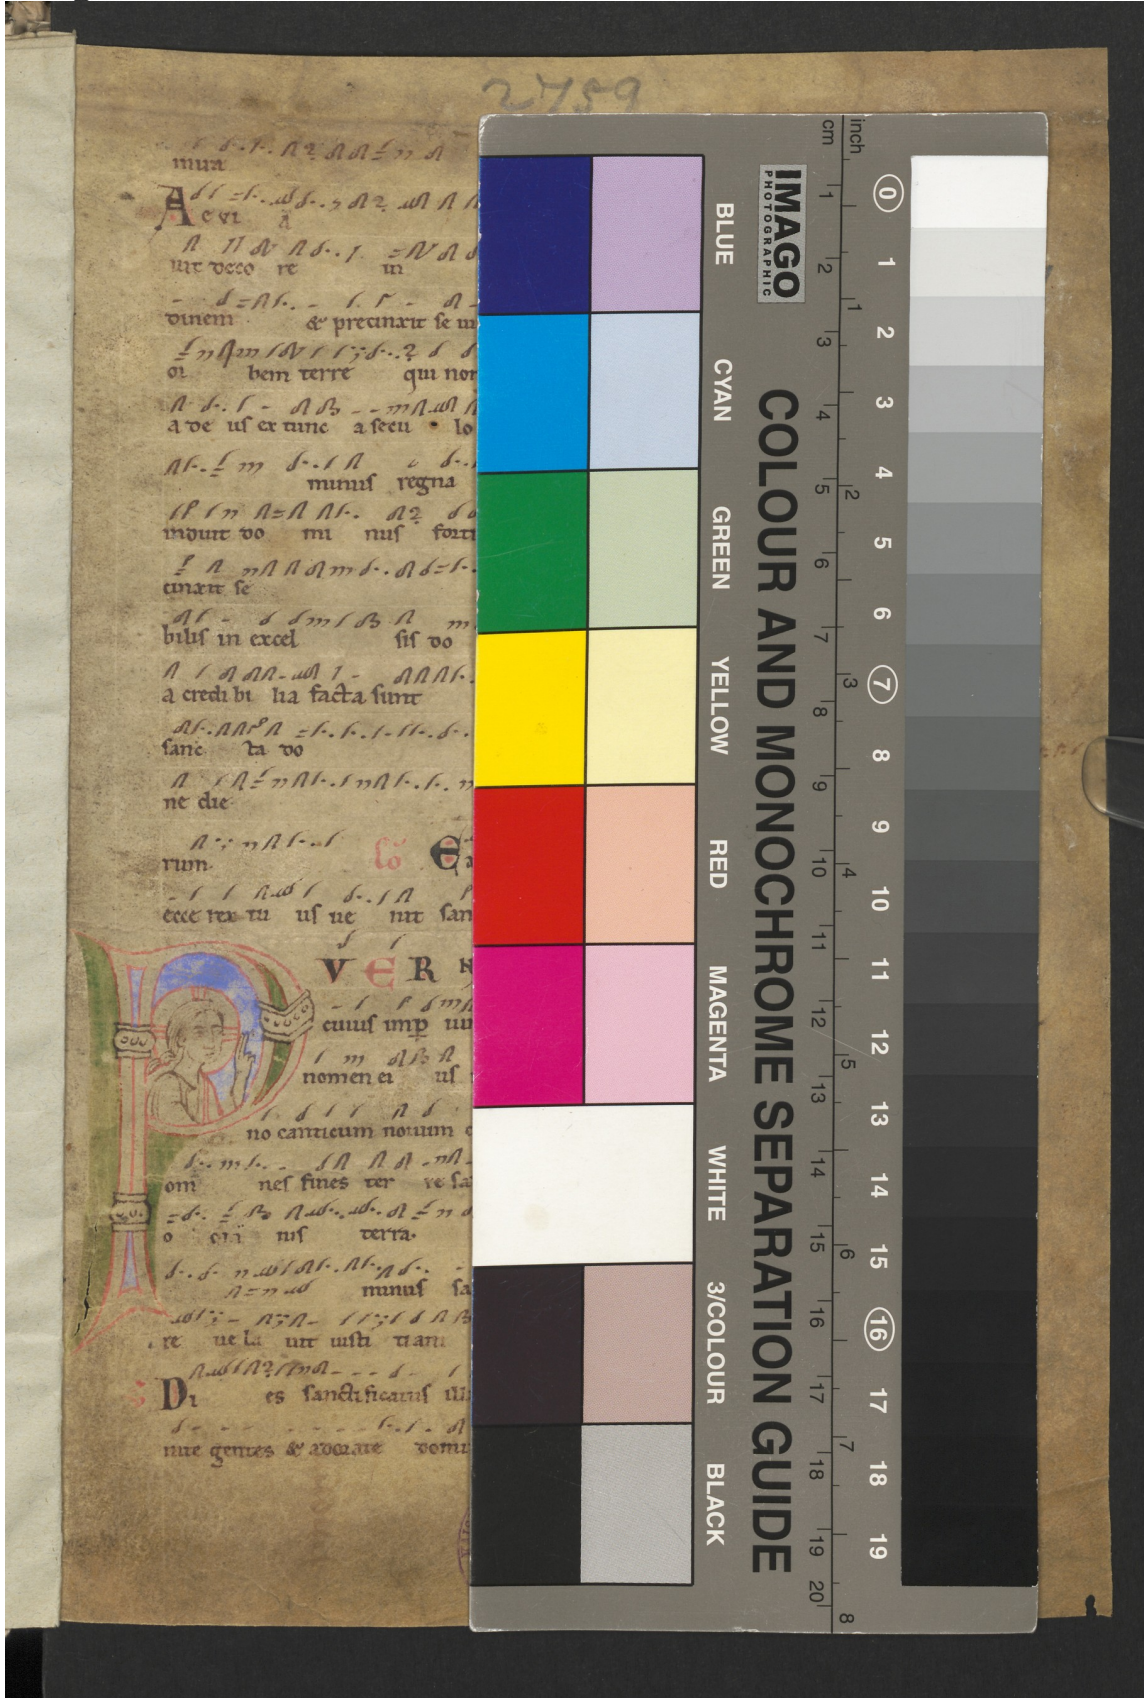 2759
mua
A e vi a
uit deco re in
dinem & precinxit se ui
or bem terre qui non
a de us ex tunc a secu lo
minus regna
induit do mi nus forti
cinxit se
bilis in excel sis do
a credi bi lia facta sunt
sanc ta do
ne die
rum. E
ecce rex tu us ue nit san
V E R N
cuius imp
nomen ei us
no canticum nouum
om nes fines ter re sa
o nis terra.
minus sa
re ue la uit iusti tiam
Di es sanctificatus illu
nite gentes & adorate domi
IMAGO
PHOTOGRAPHIC
COLOUR AND MONOCHROME SEPARATION GUIDE
BLUE
CYAN
GREEN
YELLOW
RED
MAGENTA
WHITE
3/COLOUR
BLACK
cm 1 2 3 4 5 6 7 8 9 10 11 12 13 14 15 16 17 18 19 20
inch 1 2 3 4 5 6 7 8
0 1 2 3 4 5 6 7 8 9 10 11 12 13 14 15 16 17 18 19